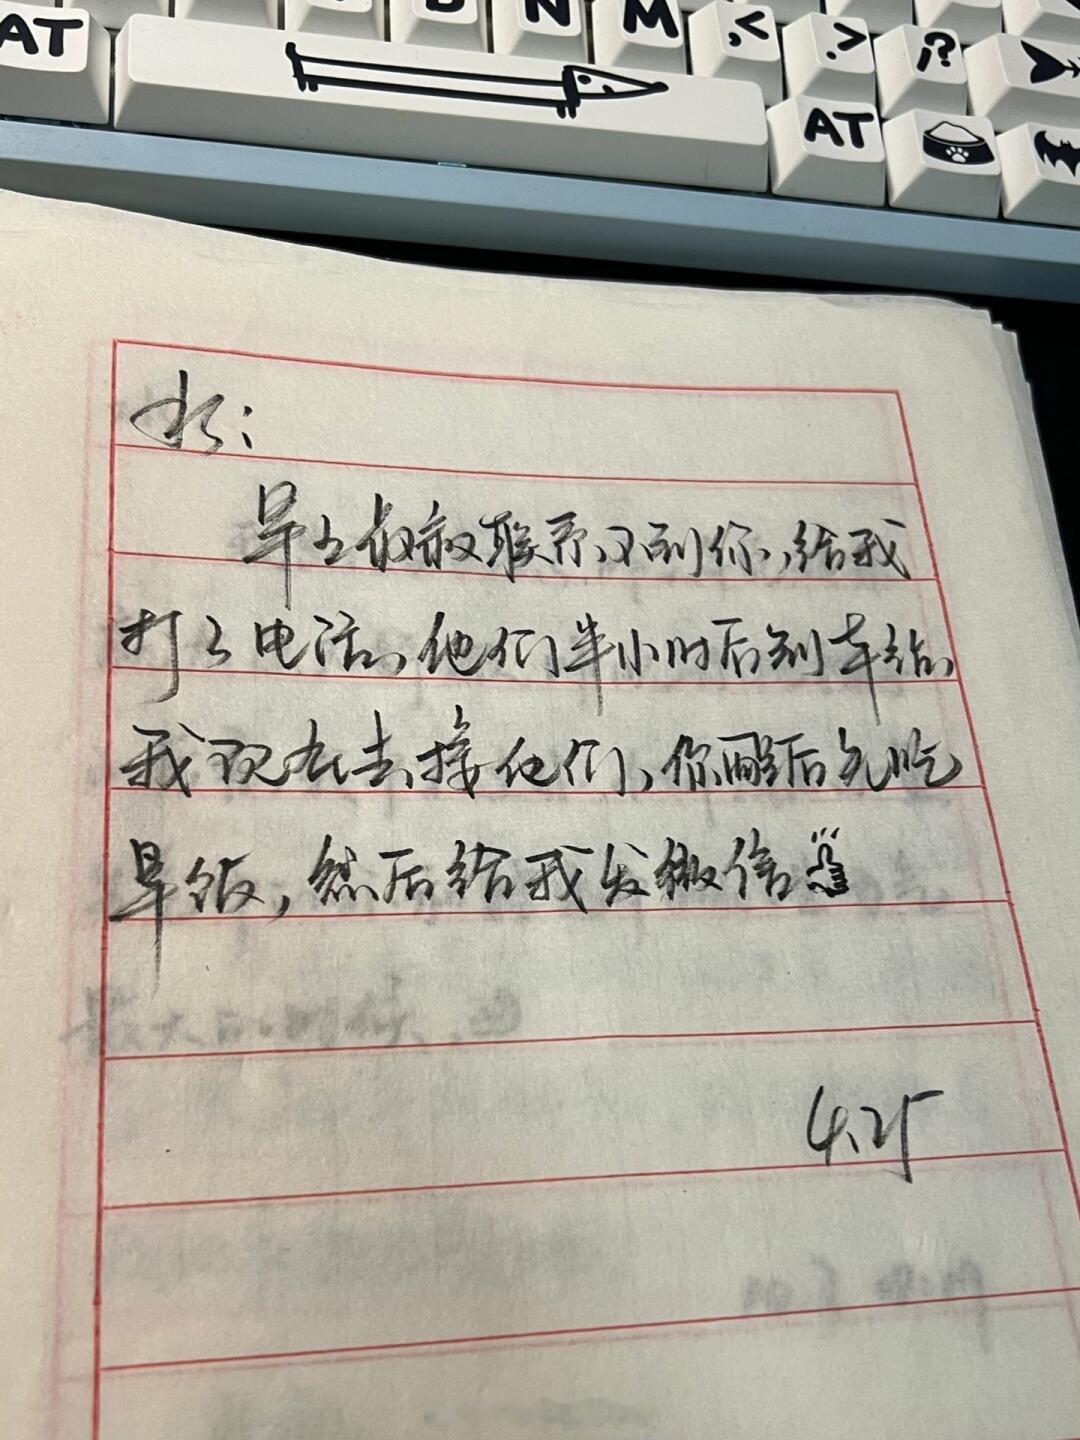 AT
B N M ,< .> /?
AT
水:
早上叔叔联系不到你,给我
打了电话,他们半小时后到车站,
我现在去接他们,你醒后先吃
早饭,然后给我发微信
4.25